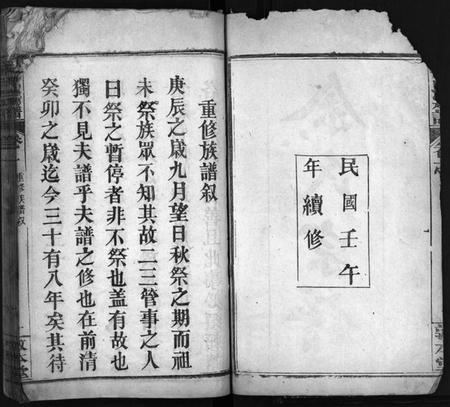 民國壬午
年續修
重修族譜叙
庚辰之歲九月望日秋祭之期而祖
未祭族眾不知其故二三管事之人
曰祭之暫停者非不祭也盖有故也
獨不見夫譜乎夫譜之修也在前清
癸卯之歲迄今三十有八年矣其待
重修族譜叙
敦本堂